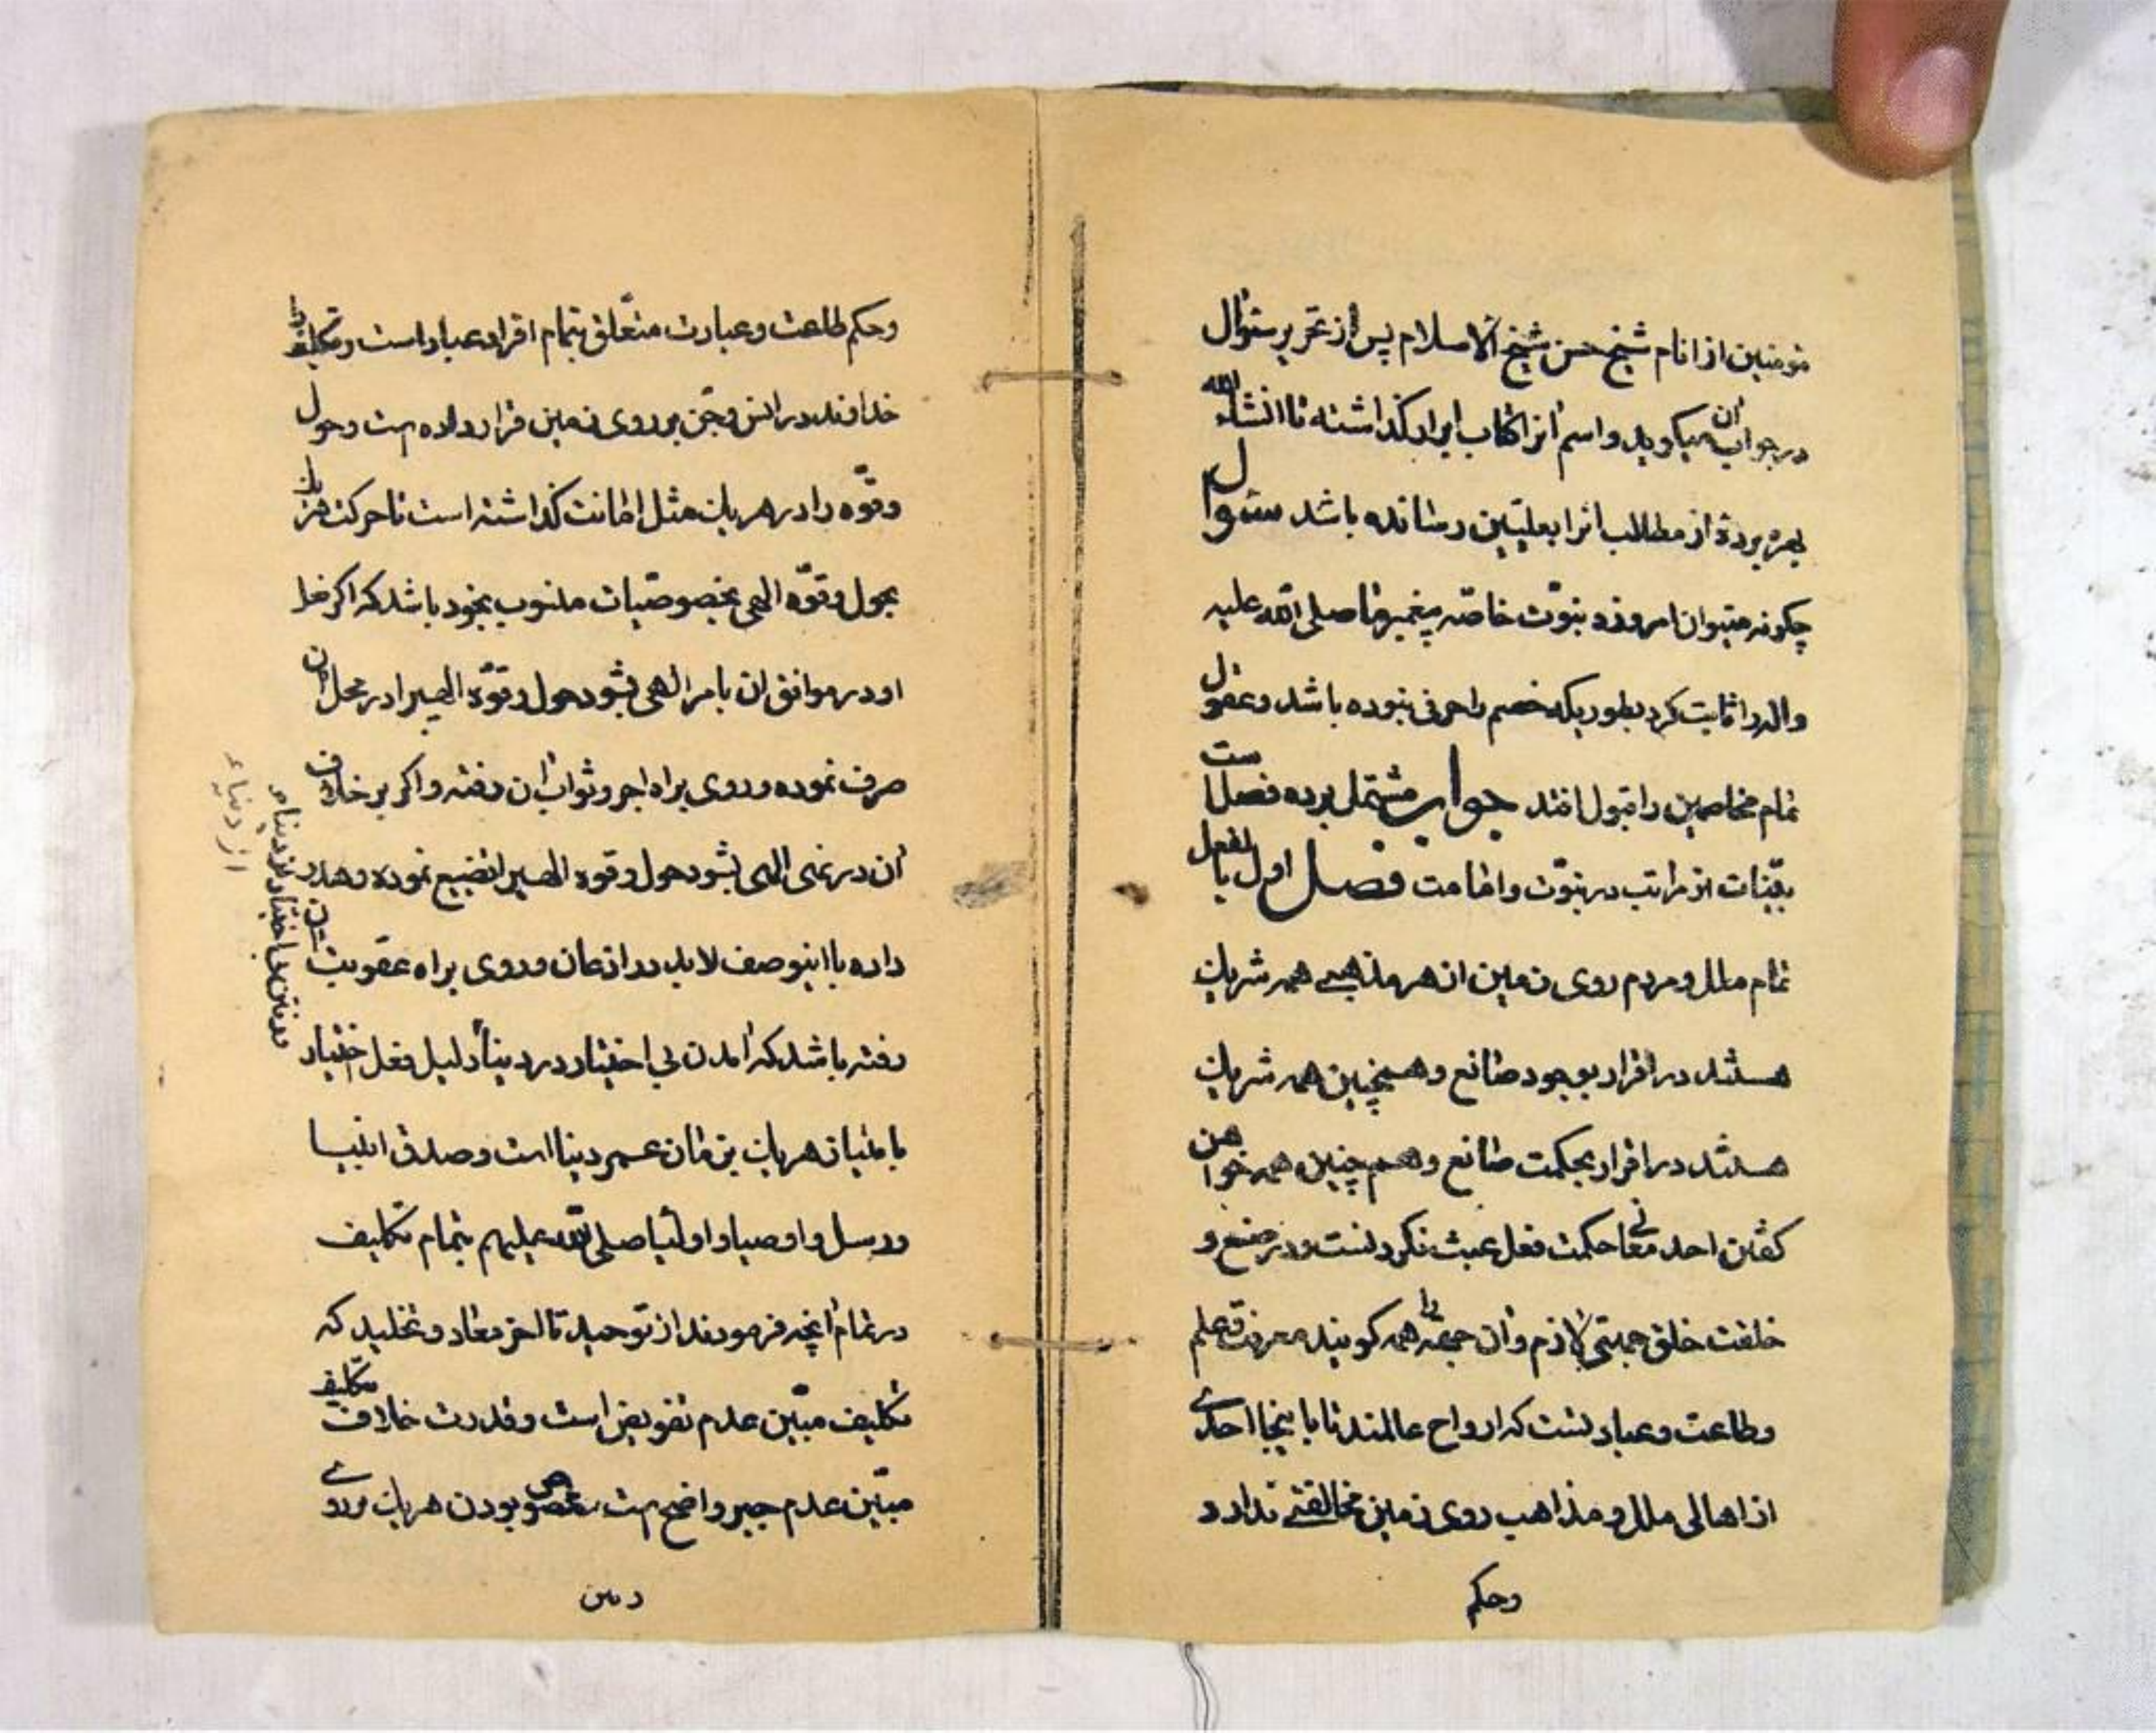 مومنین از انام شیخ حسن شیخ الاسلام پس از تحریر سئوال
در جواب آن میگوید و اسم آنرا کتاب ایراد گذاشته تا انشاء الله
بهره برده از مطالب آنرا بعلیّین رسانده باشد سئوال
چگونه میتوان امروزه نبوّت خاصّه پیغمبر ما صلی الله علیه
واله را ثابت کرد بطوریکه خصم را حرفی نبوده باشد و عقول
تمام مخاصمین را قبول افتد جواب مشتمل بر ده فصل است
بیّنات از مراتب در نبوّت و امامت فصل اول بالفعل
تمام ملل و مردم روی زمین از هر مذهبی همه شریک
هستند در اقرار بوجود صانع و همچنین همه شریک
هستند در اقرار بحکمت صانع و هم چنین همه خواهن
گفتن احد معانی حکمت فعل عبث نکردنست و در صنع و
خلقت خلق جهتی لازم و آن جهة را همه گویند معرفت و علم
وطاعت و عبادتست که ارواح عالمند تا باینجا احدی
از اهالی ملل و مذاهب روی زمین مخالفتی ندارد
وحکم
وحکم طاعت و عبادت متعلّق بتمام افراد عباد است و تکلیف را
خداوند در انس و جن بر روی زمین قرار داده است و حول
وقوّه را در هر یک مثل امانت گذاشته است تا حرکت هر یک
بحول و قوّه الهی بخصوصیّات منسوب بخود باشد که اگر خدا
او در موافق آن بامر الهی بشود حول و قوّه الهیرا در محل آن
صرف نموده و روی براه اجر و ثواب آن رفته و اگر بر خلاف
آن در نهی الهی بشود حول و قوه الهیرا تضییع نموده و هدر
داده با اینوصف لابد در اذعان و روی براه عقوبت آن
رفته باشد که آمدن بی اختیار در دنیا دلیل فعل اختیار
با میان هر یک بزمان عمر دنیا است و صدق انبیا
ورسل و اوصیا و اولیا صلی الله علیهم بتمام تکلیف
در تمام آنچه فرمودند از توحید تا الخر معاد و تخلید که
تکلیف مبیّن عدم تفویض است و قدرت خلاف تکلیف
مبیّن عدم جبر واضح است بودن هر یک
رفتن بی اختیار از دنیا
از دنیاء